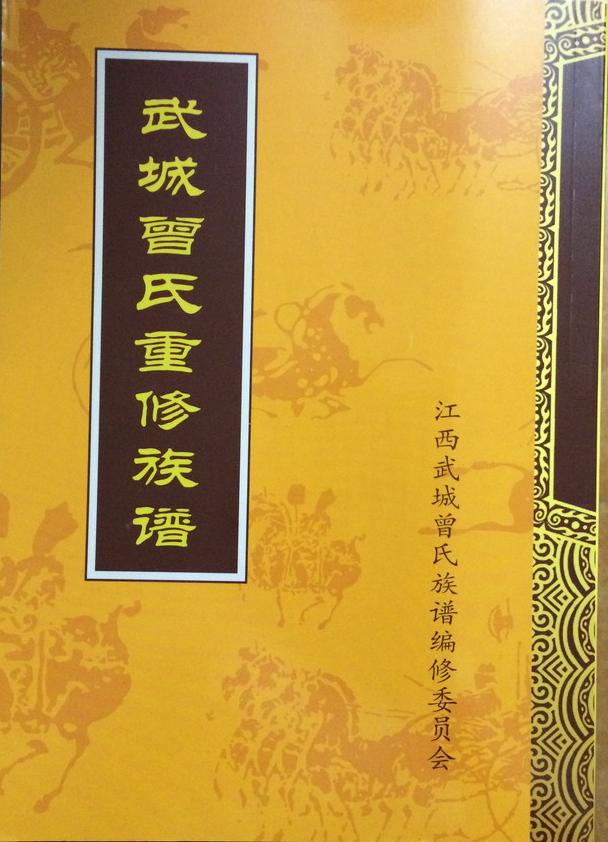 武城曾氏重修族谱
江西武城曾氏族谱编修委员会